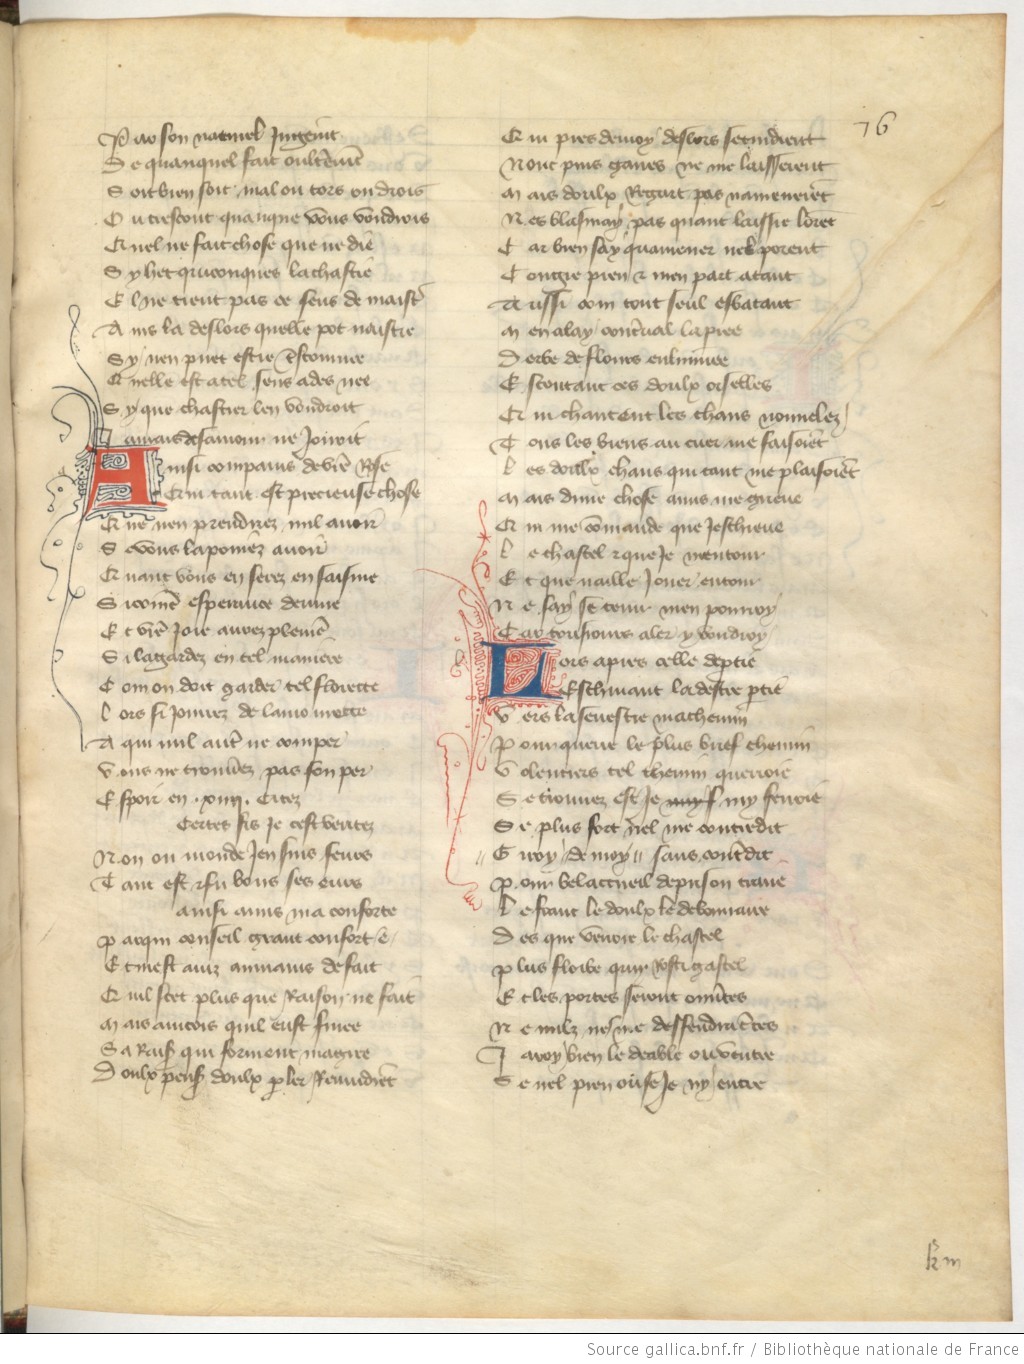 76
Par son naturel jugeint
De quanquel fait oultreement
Soit bien soit mal ou tors ou drois
Ou trestout quanque vous vondrois
Quel ne fait chose que ne die
Sy het quiconques la chastie
El ne tient pas ce sens de maistre
Ains la deslors quelle pot naistre
Sy nen puet estre
Quelle est atel sens ades nee
Sy que chastier len vondroit
Jamais de samour ne Joiroit
Ainsi compains de vre Rose
Qui tant est precieuse chose
Que nen prendriez nul avoir
Se vous la poviez avoir
Quant vous en serez en saisine
Si comme esperance devine
Et vre Joie aurez pleniere
Si la gardez en tel maniere
Com on doit garder tel florette
Lors si Jouirez de lamourette
A qui nul autre ne comper
Vous ne trouverez pas son per
Espoir en .xiiii. Citez
Certes fis je cest veritez
Non ou monde Jen suis seurs
Tant est et fu bons ses eurs
ainsi amis ma conforte
par qui conseil grant confort e
Et mest aviz au mains de fait
Quil scet plus que Raison ne fait
Mais aincois quil eust finee
Sa Raison qui forment magree
Doulx pens doulx parler Revindrent
Qui pres de moy deslors se tindrent
Nonc puis gaires ne me laisserent
Mais doulx Regart pas namenerent
Nes blasmay pas quant laissie lorent
Car bien say quamener nel porent
Congie pren et men part atant
Aussi com tout seul esbatant
Men alay contreval la pree
Derbe de flours enluminee
Escoutant ces doulx oiselles
Qui chantent les chans nouvelez
Tous les biens au cuer me faisoient
Les doulx chans qui tant me plaisoient
Mais dune chose amis me grieve
Qui me commande que Jeschieve
Le chastel et que Je mentour
Et que naille Jouer entour
Ne say se tenir men pourroy
Car tousjours aler y voudroy
Lors apres celle deptie
Eschivant la destre ptie
Vers la senestre macheminj
Pour querre le plus brief chemin
Volentiers tel chemin querroie
Se trouvez est je my feroie
Se plus fort nel me contredit
croy de moy sans contredit
Pour bel accueil de prison traire
Le franc le doulx le debonnaire
Des que verroie le chastel
plus floibe quun Rosti gastel
Et les portes seront ouvertes
Ne nulz ne me deffendra certes
J avoy bien le deable ou ventre
Se nel pren ouse je ny entre